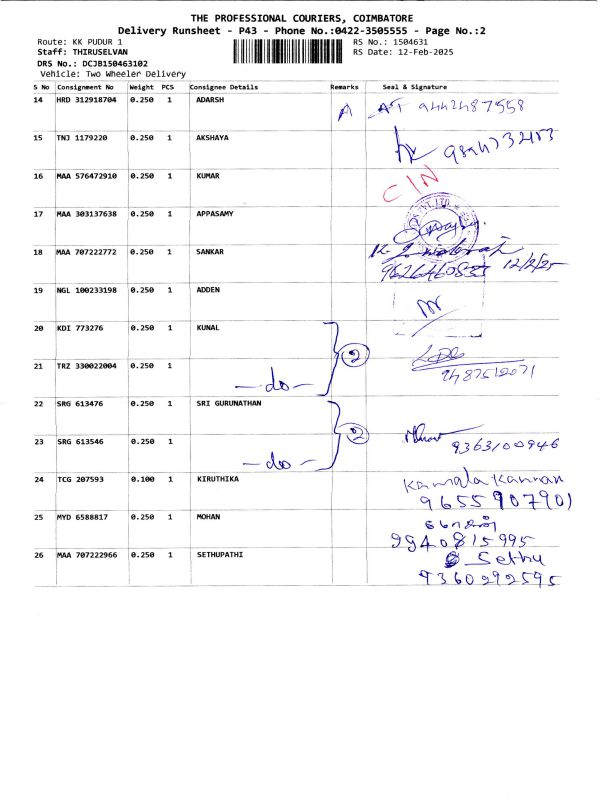 THE PROFESSIONAL COURIERS, COIMBATORE
Delivery Runsheet - P43 - Phone No.:0422-3505555 - Page No.:2
Route: KK PUDUR 1 RS No.: 1504631
Staff: THIRUSELVAN RS Date: 12-Feb-2025
DRS No.: DCJB150463102
Vehicle: Two Wheeler Delivery
S No Consignment No Weight PCS Consignee Details Remarks Seal & Signature
14 HRD 312918704 0.250 1 ADARSH A 9442487558
15 TNJ 1179220 0.250 1 AKSHAYA
16 MAA 576472910 0.250 1 KUMAR CIN
17 MAA 303137638 0.250 1 APPASAMY
18 MAA 707222772 0.250 1 SANKAR 12/2/25
19 NGL 100233198 0.250 1 ADDEN
20 KDI 773276 0.250 1 KUNAL 2
21 TRZ 330022004 0.250 1 -do- 9487512071
22 SRG 613476 0.250 1 SRI GURUNATHAN 2
23 SRG 613546 0.250 1 -do- 9363100946
24 TCG 207593 0.100 1 KIRUTHIKA Kamala Kannan
9655907901
25 MYD 6588817 0.250 1 MOHAN
9940815995
26 MAA 707222966 0.250 1 SETHUPATHI Sethu
9360292595